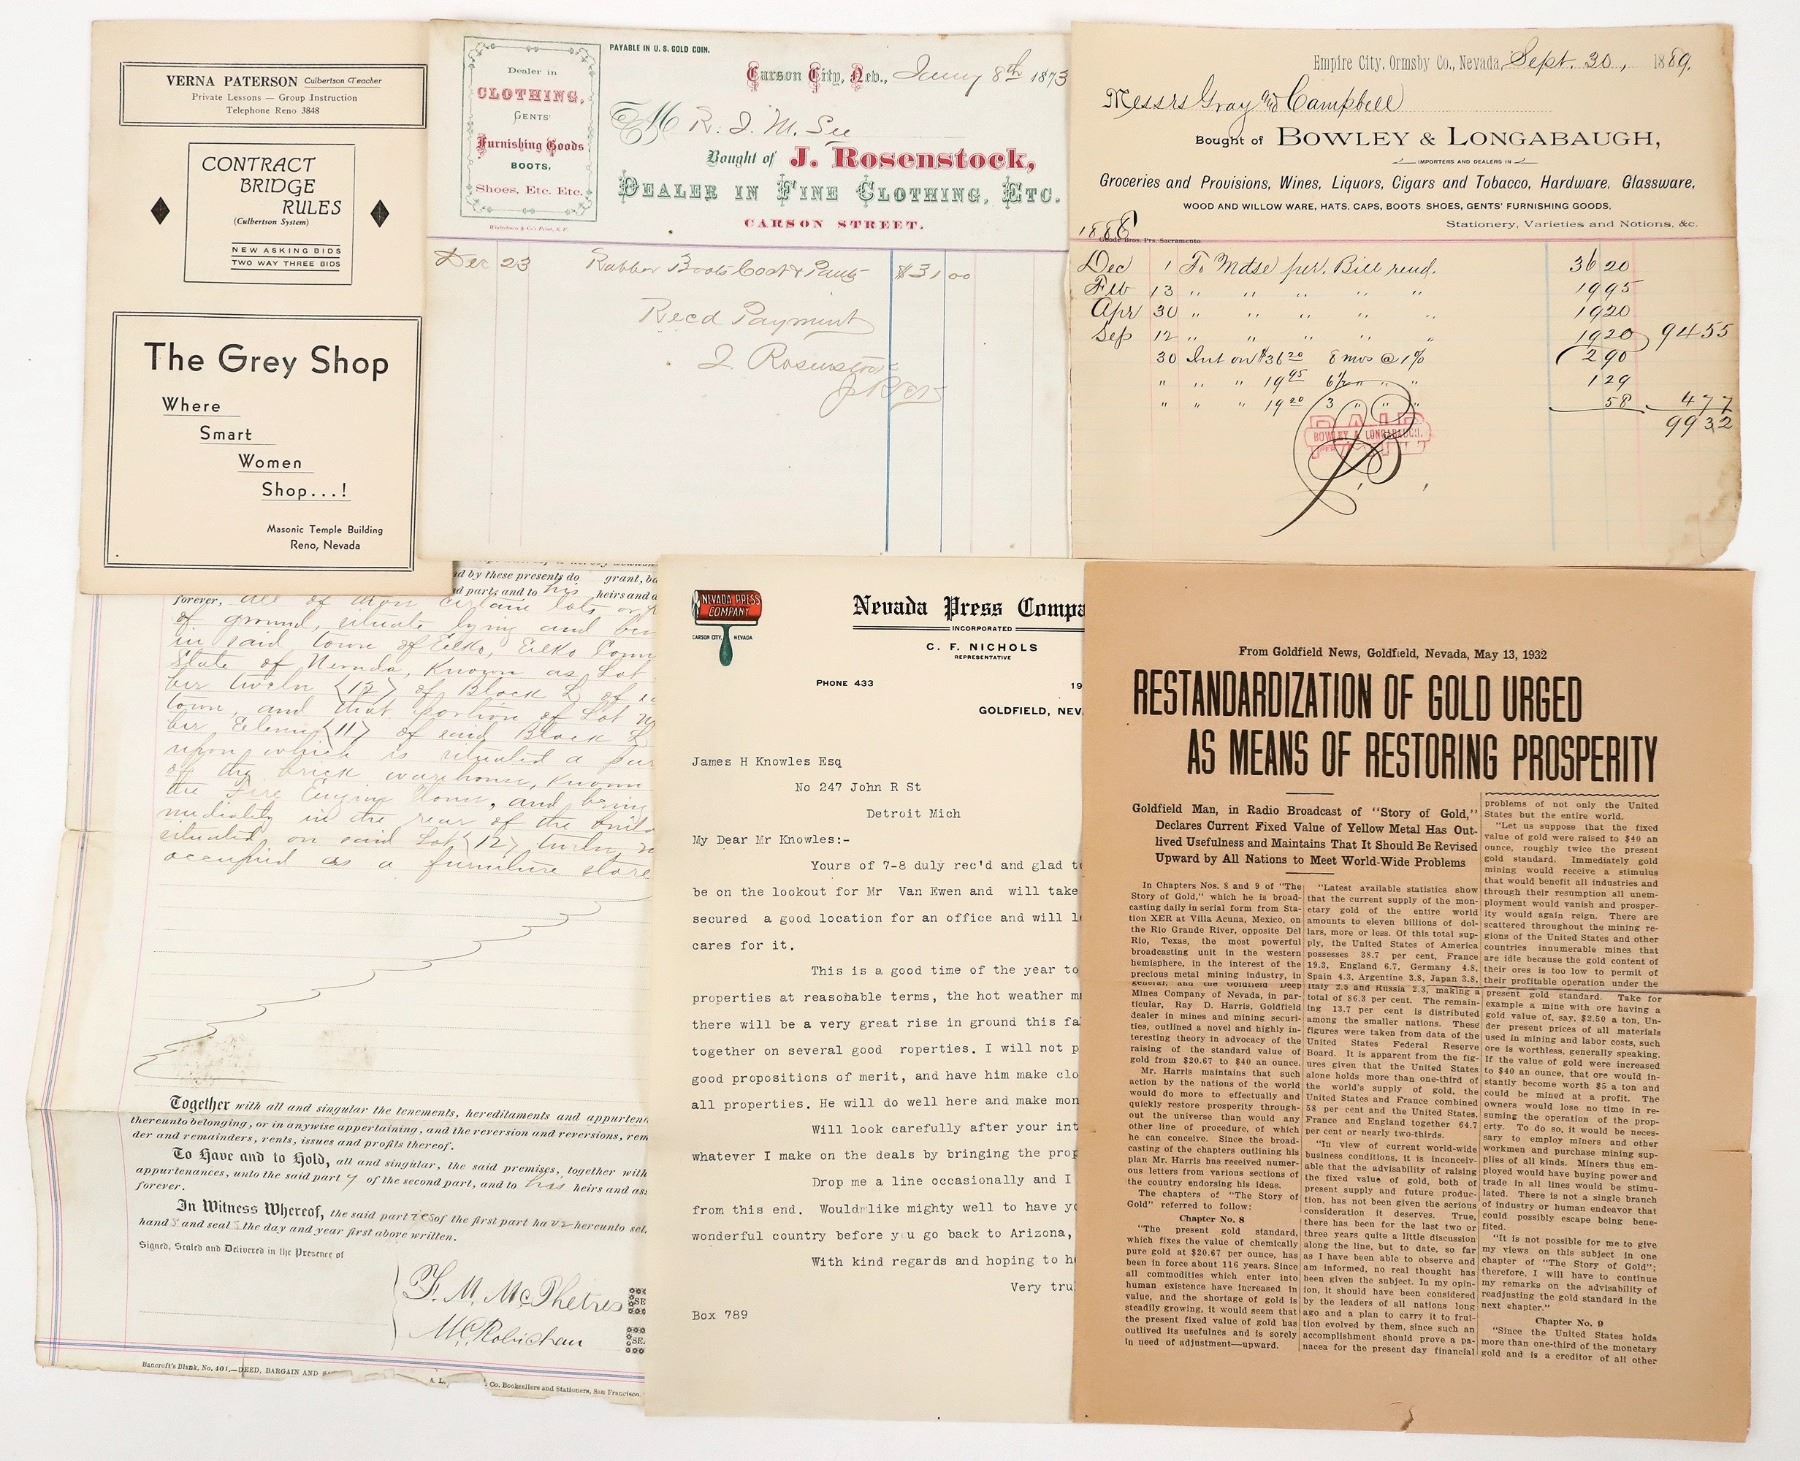 VERNA PATERSON Culbertson Teacher
Private Lessons — Group Instruction
Telephone Reno 3848
CONTRACT
BRIDGE
RULES
(Culbertson System)
NEW ASKING BIDS
TWO WAY THREE BIDS
The Grey Shop
Where
Smart
Women
Shop...!
Masonic Temple Building
Reno, Nevada
PAYABLE IN U. S. GOLD COIN.
Dealer in
CLOTHING,
GENTS'
Furnishing Goods
BOOTS,
Shoes, Etc. Etc.
Carson City, Nev., Jany 8th 1873
M R. J. M. See
Bought of J. Rosenstock,
DEALER IN FINE CLOTHING, ETC.
CARSON STREET.
Dec 23 Rubber Boots Coat & Pants $31 00
Recd Payment
J. Rosenstock
Empire City, Ormsby Co., Nevada, Sept. 30, 1889.
Messrs Gray and Campbell
Bought of BOWLEY & LONGABAUGH,
IMPORTERS AND DEALERS IN
Groceries and Provisions, Wines, Liquors, Cigars and Tobacco, Hardware, Glassware,
WOOD AND WILLOW WARE, HATS, CAPS, BOOTS, SHOES, GENTS' FURNISHING GOODS,
Stationery, Varieties and Notions, &c.
1888
Dec 1 To Mdse per. Bill rend. 36 20
Feb 13 " " " " " 19 95
Apr 30 " " " " " 19 20
Sep 12 " " " " " 19 20 94 55
30 Int on $36 20 8 mos @ 1% 2 90
" " " 19 95 6 1/2 " " " 1 29
" " " 19 20 3 " " " 58 4 77
99 32
PAID
BOWLEY & LONGABAUGH.
PER
d by these presents do grant, ba
d part and to his heirs and a
forever, all of them certain lots or p
of ground, situate lying and bein
in said town of Elko, Elko Coun
State of Nevada, known as Lot
ber twelve (12) of Block L of sa
town, and that portion of Lot N
ber Eleven (11) of said Block L
upon which is situated a par
of the brick warehouse, known
the Fire Engine House, and being
mediately in the rear of the build
situated on said Lot (12) twelve, n
occupied as a furniture store
Together with all and singular the tenements, hereditaments and appurten
thereunto belonging, or in anywise appertaining, and the reversion and reversions, rem
der and remainders, rents, issues and profits thereof.
To Have and to Hold, all and singular, the said premises, together with
appurtenances, unto the said part y of the second part, and to his heirs and ass
forever.
In Witness Whereof, the said parties of the first part have hereunto set
hands and seals the day and year first above written.
Signed, Sealed and Delivered in the Presence of
F. M. McPhetres
SE
SEA
Bancroft's Blank, No. 401.—DEED, BARGAIN AND S
Co. Booksellers and Stationers, San Francisco.
NEVADA PRESS
COMPANY
CARSON CITY, NEVADA
Nevada Press Compa
INCORPORATED
C. F. NICHOLS
REPRESENTATIVE
PHONE 433
19
GOLDFIELD, NEV.
James H Knowles Esq
No 247 John R St
Detroit Mich
My Dear Mr Knowles:-
Yours of 7-8 duly rec'd and glad t
be on the lookout for Mr Van Ewen and will take
secured a good location for an office and will l
cares for it.
This is a good time of the year to
properties at reasonable terms, the hot weather m
there will be a very great rise in ground this fa
together on several good roperties. I will not p
good propositions of merit, and have him make clo
all properties. He will do well here and make mon
Will look carefully after your int
whatever I make on the deals by bringing the prop
Drop me a line occasionally and I
from this end. Would like mighty well to have yo
wonderful country before y u go back to Arizona,
With kind regards and hoping to he
Very tru
Box 789
From Goldfield News, Goldfield, Nevada, May 13, 1932
RESTANDARDIZATION OF GOLD URGED
AS MEANS OF RESTORING PROSPERITY
Goldfield Man, in Radio Broadcast of "Story of Gold,"
Declares Current Fixed Value of Yellow Metal Has Out-
lived Usefulness and Maintains That It Should Be Revised
Upward by All Nations to Meet World-Wide Problems
In Chapters Nos. 8 and 9 of "The
Story of Gold," which he is broad-
casting daily in serial form from Sta-
tion XER at Villa Acuna, Mexico, on
the Rio Grande River, opposite Del
Rio, Texas, the most powerful
broadcasting unit in the western
hemisphere, in the interest of the
precious metal mining industry, in
general, and the Goldfield Deep
Mines Company of Nevada, in par-
ticular, Ray D. Harris, Goldfield
dealer in mines and mining securi-
ties, outlined a novel and highly in-
teresting theory in advocacy of the
raising of the standard value of
gold from $20.67 to $40 an ounce.
Mr. Harris maintains that such
action by the nations of the world
would do more to effectually and
quickly restore prosperity through-
out the universe than would any
other line of procedure, of which
he can conceive. Since the broad-
casting of the chapters outlining his
plan Mr. Harris has received numer-
ous letters from various sections of
the country endorsing his ideas.
The chapters of "The Story of
Gold" referred to follow:
Chapter No. 8
"The present gold standard,
which fixes the value of chemically
pure gold at $20.67 per ounce, has
been in force about 116 years. Since
all commodities which enter into
human existence have increased in
value, and the shortage of gold is
steadily growing, it would seem that
the present fixed value of gold has
outlived its usefulnes and is sorely
in need of adjustment—upward.
"Latest available statistics show
that the current supply of the mon-
etary gold of the entire world
amounts to eleven billions of dol-
lars, more or less. Of this total sup-
ply, the United States of America
possesses 38.7 per cent, France
19.3, England 6.7, Germany 4.8,
Spain 4.3, Argentine 3.8, Japan 3.8,
Italy 2.5 and Russia 2.3, making a
total of 86.3 per cent. The remain-
ing 13.7 per cent is distributed
among the smaller nations. These
figures were taken from data of the
United States Federal Reserve
Board. It is apparent from the fig-
ures given that the United States
alone holds more than one-third of
the world's supply of gold, the
United States and France combined
58 per cent and the United States,
France and England together 64.7
per cent or nearly two-thirds.
"In view of current world-wide
business conditions, it is inconceiv-
able that the advisability of raising
the fixed value of gold, both of
present supply and future produc-
tion, has not been given the serious
consideration it deserves. True,
there has been for the last two or
three years quite a little discussion
along the line, but to date, so far
as I have been able to observe and
am informed, no real thought has
been given the subject. In my opin-
ion, it should have been considered
by the leaders of all nations long
ago and a plan to carry it to frui-
tion evolved by them, since such an
accomplishment should prove a pa-
nacea for the present day financial
problems of not only the United
States but the entire world.
"Let us suppose that the fixed
value of gold were raised to $40 an
ounce, roughly twice the present
gold standard. Immediately gold
mining would receive a stimulus
that would benefit all industries and
through their resumption all unem-
ployment would vanish and prosper-
ity would again reign. There are
scattered throughout the mining re-
gions of the United States and other
countries innumerable mines that
are idle because the gold content of
their ores is too low to permit of
their profitable operation under the
present gold standard. Take for
example a mine with ore having a
gold value of, say, $2.50 a ton. Un-
der present prices of all materials
used in mining and labor costs, such
ore is worthless, generally speaking.
If the value of gold were increased
to $40 an ounce, that ore would in-
stantly become worth $5 a ton and
could be mined at a profit. The
owners would lose no time in re-
suming the operation of the prop-
erty. To do so, it would be neces-
sary to employ miners and other
workmen and purchase mining sup-
plies of all kinds. Miners thus em-
ployed would have buying power and
trade in all lines would be stimu-
lated. There is not a single branch
of industry or human endeavor that
could possibly escape being bene-
fited.
"It is not possible for me to give
my views on this subject in one
chapter of "The Story of Gold";
therefore, I will have to continue
my remarks on the advisability of
readjusting the gold standard in the
next chapter."
Chapter No. 9
"Since the United States holds
more than one-third of the monetary
gold and is a creditor of all other